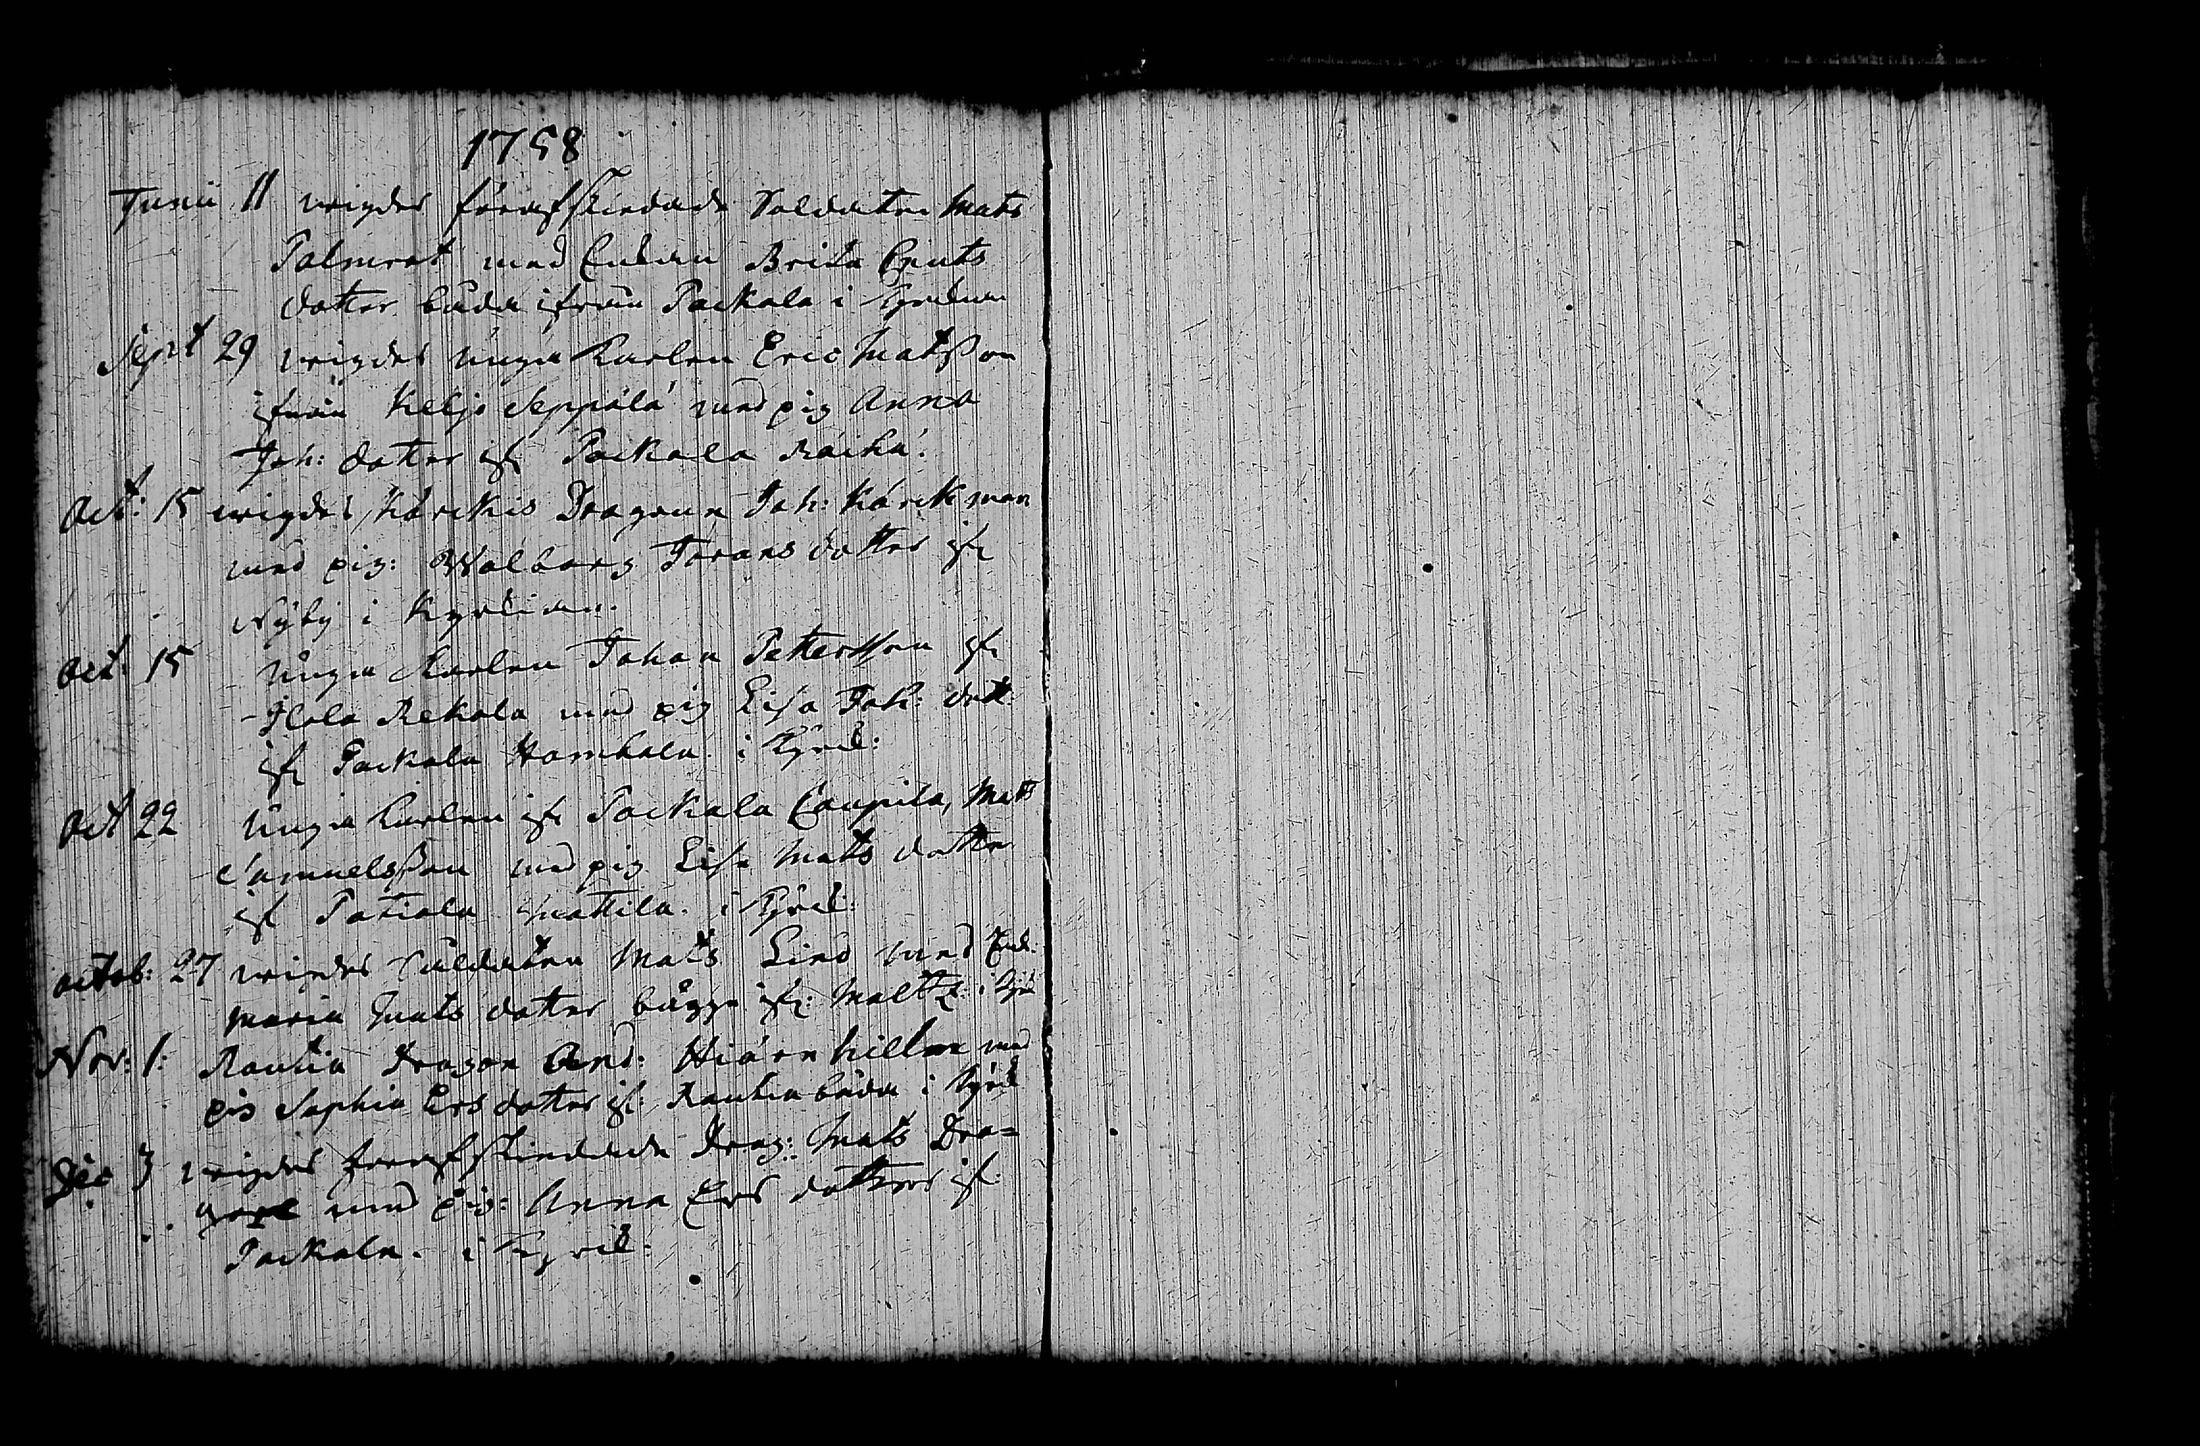 1758
Junii 11 wigdes förafskiedade Soldaten Mats
Palmrot med Enkan Brita Cnuts
dotter båda ifrån Packala i Kyrkian
Sept 29 wigdes unga Karlen Eric Matsson
ifrån Keljo Seppälä med pig Anna
Joh: dotter ifr Packala Raiha.
Oct: 15 wigdes Härckis Dragoun Joh: Härckman
med pig: Walborg Jörans dotter ifr
Nyby i Kyrkian.
Oct: 15 Unga Karlen Johan Pettersson ifr
Ilola Rekola med pig Lisa Joh: dott:
ifr Packala Hamhala i Kyrk:
Oct 22 Unga Karlen ifr Packala Caupila, Matts
Samuelsson med pig Lisa Mats dotter
ifr Patiala Mattila i Kyrk:
Octob: 27 wigdes Soldaten Mats Lind med Enk:
Maria Knuts dotter bägge ifr: i Kyrk
Nov: 1: Rautia Dragon And: med
pig Sophia Ers dotter ifr: Rautia båda i Kyrk
Dec 3 wigdes förafskiedade Drag: Mats Dra=
med pig: Anna Ers dotter ifr:
Packala. i Kyrck: